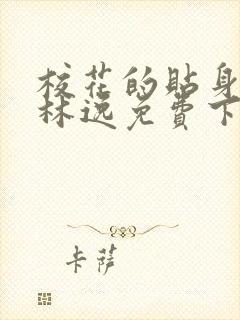 校花的贴身
林逸免費下
卡薩